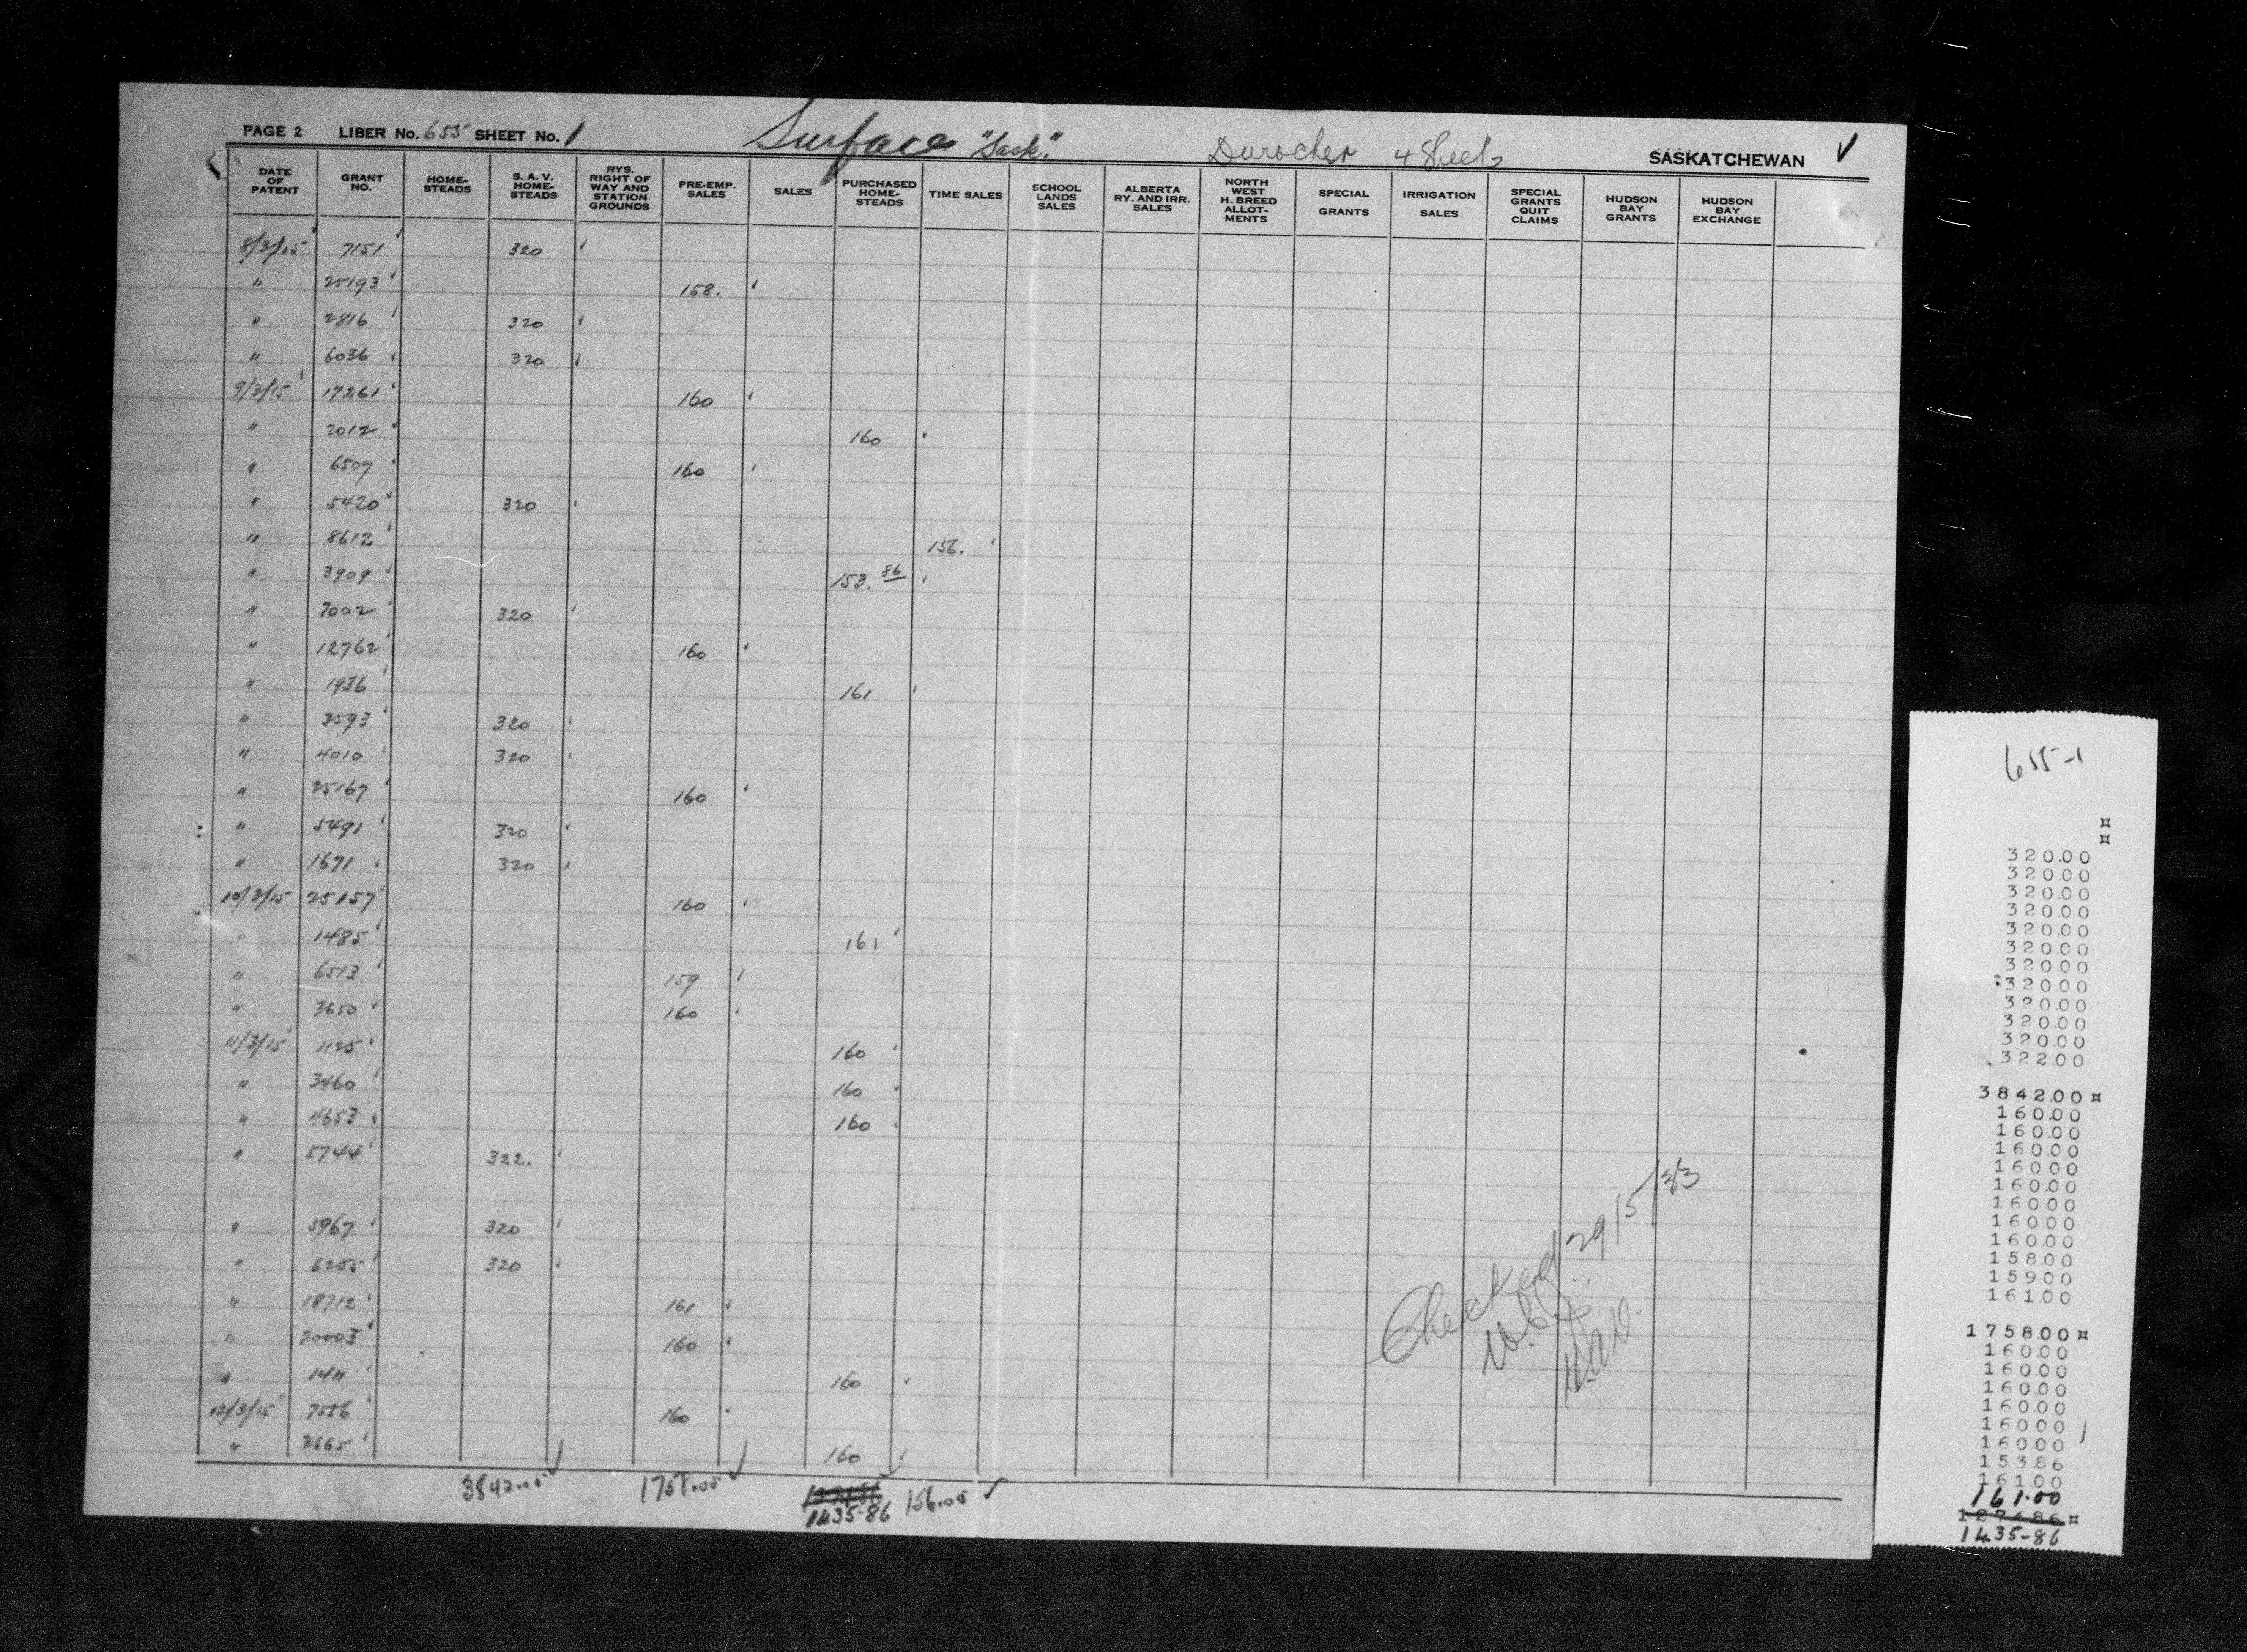 PAGE 2 LIBER No. 655 SHEET No. 1 Surface "Sask." Durocher 4 Sheets SASKATCHEWAN ✓
DATE OF PATENT GRANT NO. HOME-STEADS S. A. V. HOME-STEADS RYS. RIGHT OF WAY AND STATION GROUNDS PRE-EMP. SALES SALES PURCHASED HOME-STEADS TIME SALES SCHOOL LANDS SALES ALBERTA RY. AND IRR. SALES NORTH WEST H. BREED ALLOT-MENTS SPECIAL GRANTS IRRIGATION SALES SPECIAL GRANTS QUIT CLAIMS HUDSON BAY GRANTS HUDSON BAY EXCHANGE
8/3/15 7151 320
" 25193 158.
" 2816 320
" 6036 320
9/3/15 17261 160
" 2012 160
" 6507 160
" 5420 320
" 8612 156.
" 3909 153.86
" 7002 320
" 12762 160
" 1936 161
" 3593 320
" 4010 320
" 25167 160
" 5491 320
" 1671 320
10/3/15 25157 160
" 1485 161
" 6513 159
" 3650 160
11/3/15 1125 160
" 3460 160
" 4653 160
" 5744 322.
" 5967 320
" 6255 320
" 18712 161
" 160
" 1411 160
12/3/15 160
" 3665 160
3842.00 1758.00 1274.86 156.00
1435-86
Checked 29/5/33
655-1
¤
¤
320.00
320.00
320.00
320.00
320.00
320.00
320.00
320.00
320.00
320.00
320.00
322.00
3842.00¤
160.00
160.00
160.00
160.00
160.00
160.00
160.00
160.00
158.00
159.00
161.00
1758.00¤
160.00
160.00
160.00
160.00
160.00
160.00
153.86
161.00
161.00
1274.86¤
1435-86